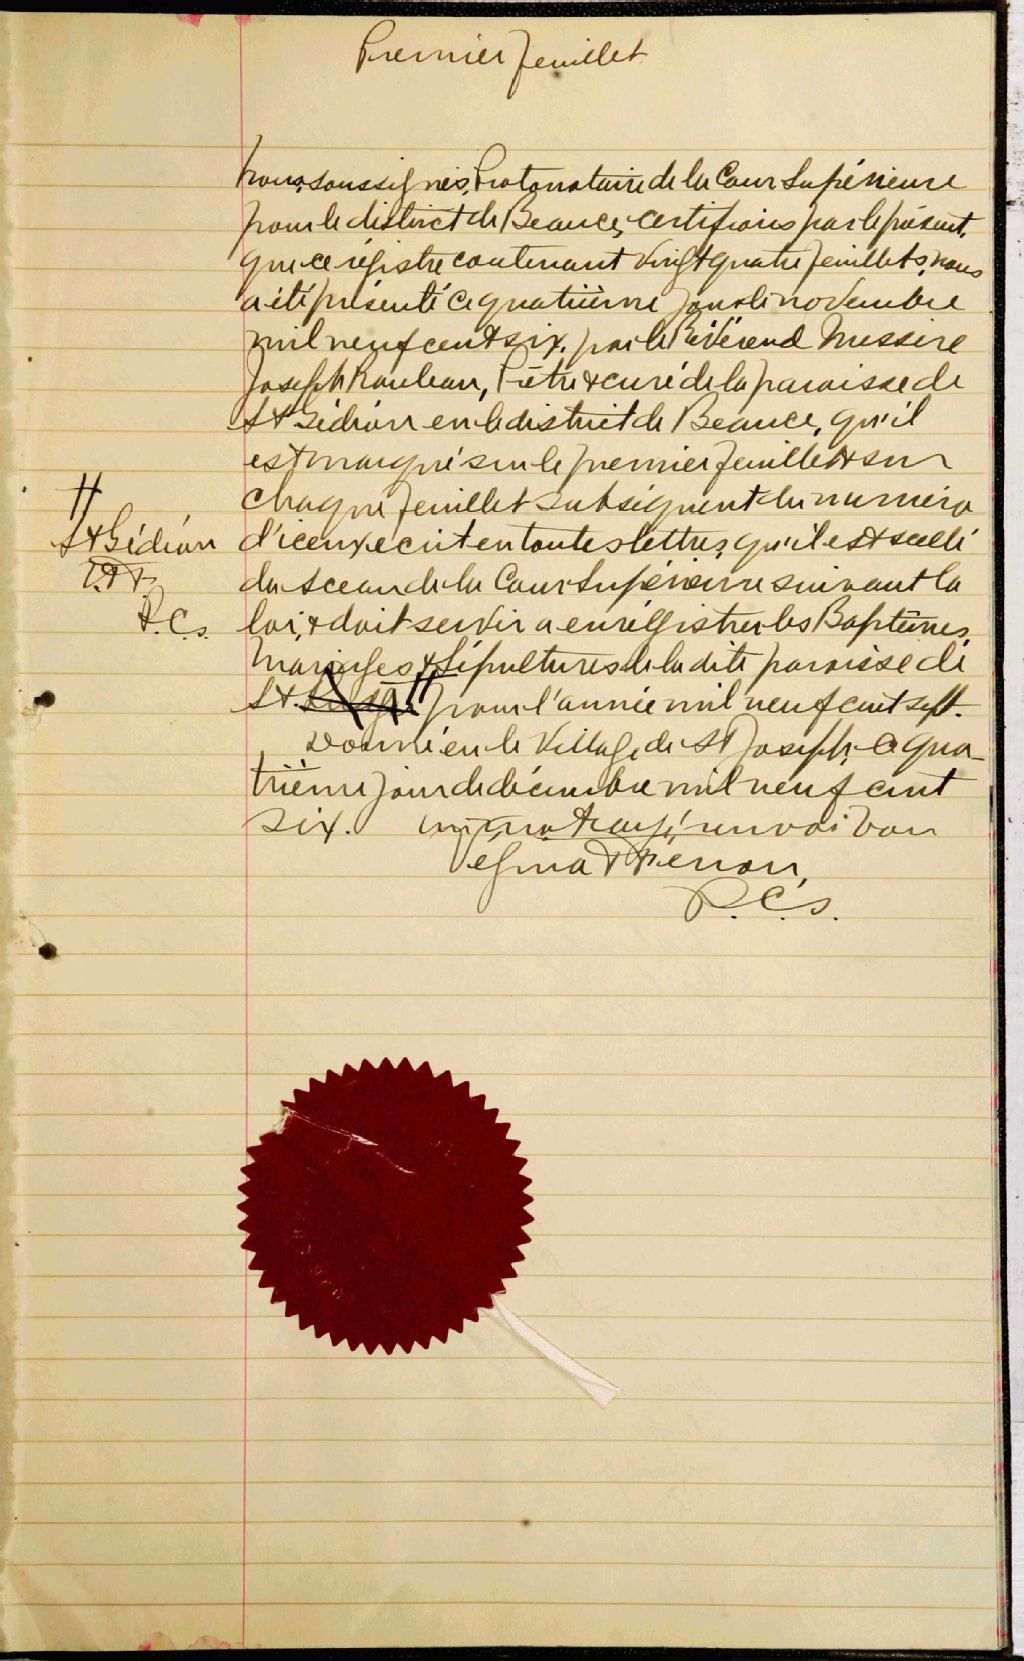 Premier feuillet
Nous, soussignés, Protonotaire de la Cour Supérieure
pour le district de Beauce, certifions par le présent,
que ce régistre contenant vingt quatre feuillets, nous
a été présenté ce quatrième jour de novembre
mil neuf cent six, par le Révérend Messire
Joseph Rouleau, Prêtre & curé de la paroisse de
St Gédéon en le district de Beauce, qu'il
est marqué sur le premier feuillet & sur
chaque feuillet subséquent du numéro
//
St Gédéon
P.C.S.
d'iceux écrit en toutes lettres, qu'il est scellé
du sceau de la Cour Supérieure suivant la
loi, & doit servir a enrégistrer les Baptêmes,
Mariages & Sépultures de la dite paroisse de
St. // pour l'année mil neuf cent sept.
Donné en le Village de St Joseph, ce qua-
trième jour de décembre mil neuf cent
six. un mot rayé, un renvoi bon
P.C.S.